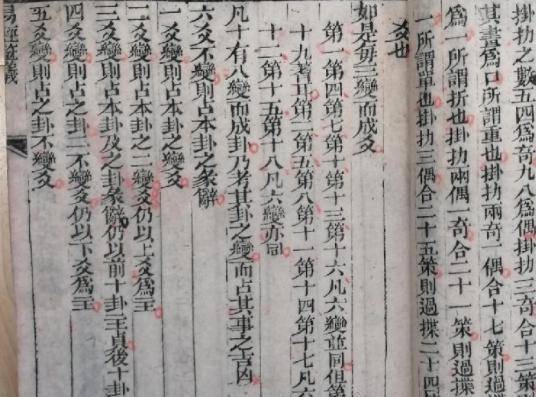 掛扐之數五四爲奇九八爲偶掛扐三奇合十三策
其畫爲口所謂重也掛扐兩奇一偶合十七策則過
爲一所謂折也掛扐兩偶一奇合二十一策則過揲
一所謂單也掛扐三偶合二十五策則過揲二十四
爻也
如是每三變而成爻
第一第四第七第十第十三第十六凡六變並同但第
十九蓍耳第二第五第八第十一第十四第十七凡六
十二第十五第十八凡六變亦同
凡十有八變而成卦乃考其卦之變而占其事之吉凶
六爻不變則占本卦之彖辭
一爻變則占本卦之變爻
二爻變則占本卦之二變爻仍以上爻爲主
三爻變則占本卦及之卦彖辭仍以前十卦主貞後十卦
四爻變則占之卦二不變爻仍以下爻爲主
五爻變則占之卦不變爻
易經筮義